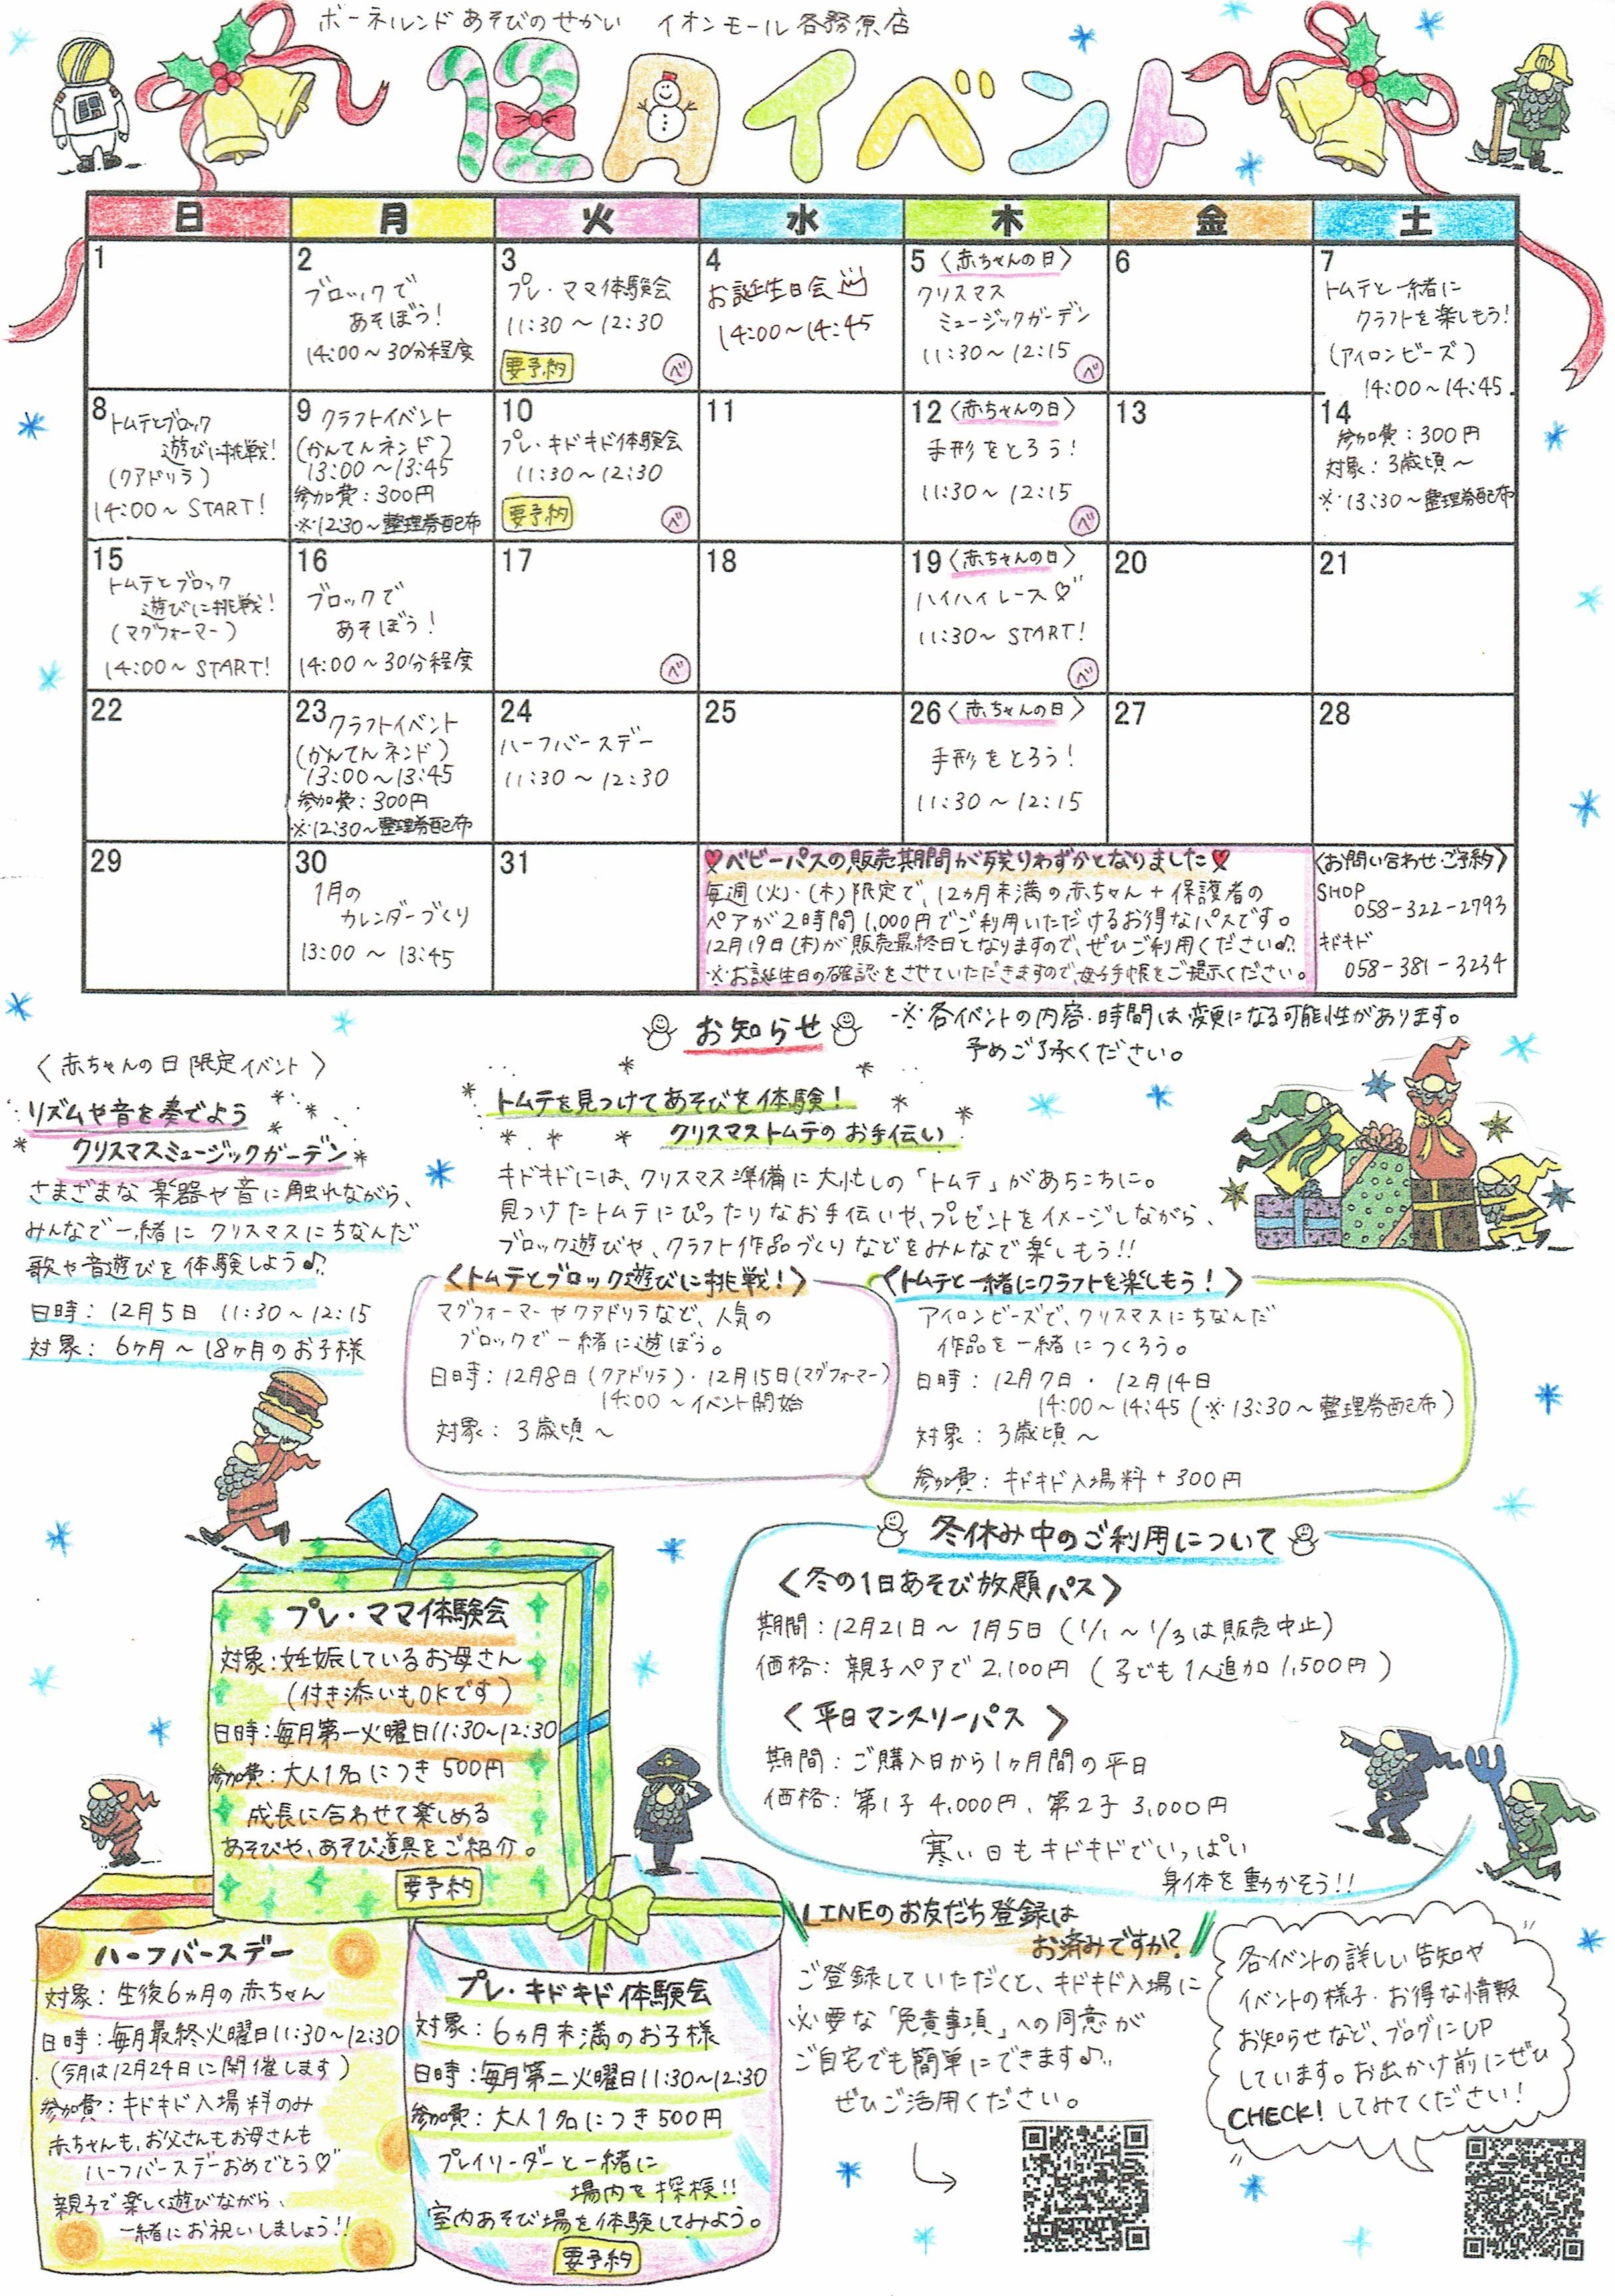 ボーネルンド あそびのせかい イオンモール各務原店
12月イベント
日 月 火 水 木 金 土
1
2
ブロックで
あそぼう!
14:00～30分程度
3
プレ・ママ体験会
11:30～12:30
要予約 ベ
4
お誕生日会
14:00～14:45
5 〈赤ちゃんの日〉
クリスマス
ミュージックガーデン
11:30～12:15
ベ
6
7
トムテと一緒に
クラフトを楽しもう!
(アイロンビーズ)
14:00～14:45
8 トムテとブロック
遊びに挑戦!
(クアドリラ)
14:00～START!
9 クラフトイベント
(かんてんネンド)
13:00～13:45
参加費:300円
※12:30～整理券配布
10
プレ・キドキド体験会
11:30～12:30
要予約 ベ
11
12 〈赤ちゃんの日〉
手形をとろう!
11:30～12:15
ベ
13
14
参加費:300円
対象:3歳頃～
※13:30～整理券配布
15
トムテとブロック
遊びに挑戦!
(マグフォーマー)
14:00～START!
16
ブロックで
あそぼう!
14:00～30分程度
17
ベ
18
19 〈赤ちゃんの日〉
ハイハイレース♡
11:30～START!
ベ
20
21
22
23 クラフトイベント
(かんてんネンド)
13:00～13:45
参加費:300円
※12:30～整理券配布
24
ハーフバースデー
11:30～12:30
25
26 〈赤ちゃんの日〉
手形をとろう!
11:30～12:15
27
28
29
30
1月の
カレンダーづくり
13:00～13:45
31
♥ベビーパスの販売期間が残りわずかとなりました♥
毎週(火)・(木)限定で、12ヵ月未満の赤ちゃん+保護者の
ペアが2時間1,000円でご利用いただけるお得なパスです。
12月19日(木)が販売最終日となりますので、ぜひご利用ください♪
※お誕生日の確認をさせていただきますので、母子手帳をご提示ください。
〈お問い合わせ・ご予約〉
SHOP
058-322-2793
キドキド
058-381-3234
お知らせ
※各イベントの内容・時間は変更になる可能性があります。
予めご了承ください。
〈赤ちゃんの日限定イベント〉
リズムや音を奏でよう
クリスマスミュージックガーデン
さまざまな楽器や音に触れながら、
みんなで一緒にクリスマスにちなんだ
歌や音遊びを体験しよう♪
日時:12月5日 11:30～12:15
対象:6ヶ月～18ヶ月のお子様
トムテを見つけてあそびを体験!
クリスマストムテのお手伝い
キドキドには、クリスマス準備に大忙しの「トムテ」があちこちに。
見つけたトムテにぴったりなお手伝いや、プレゼントをイメージしながら、
ブロック遊びや、クラフト作品づくりなどをみんなで楽しもう!!
〈トムテとブロック遊びに挑戦!〉
マグフォーマーやクアドリラなど、人気の
ブロックで一緒に遊ぼう。
日時:12月8日(クアドリラ)・12月15日(マグフォーマー)
14:00～イベント開始
対象:3歳頃～
〈トムテと一緒にクラフトを楽しもう!〉
アイロンビーズで、クリスマスにちなんだ
作品を一緒につくろう。
日時:12月7日・12月14日
14:00～14:45(※13:30～整理券配布)
対象:3歳頃～
参加費:キドキド入場料+300円
冬休み中のご利用について
〈冬の1日あそび放題パス〉
期間:12月21日～1月5日(1/1～1/3は販売中止)
価格:親子ペアで2,100円(子ども1人追加1,500円)
〈平日マンスリーパス〉
期間:ご購入日から1ヶ月間の平日
価格:第1子4,000円、第2子3,000円
寒い日もキドキドでいっぱい
身体を動かそう!!
プレ・ママ体験会
対象:妊娠しているお母さん
(付き添いもOKです)
日時:毎月第一火曜日11:30～12:30
参加費:大人1名につき500円
成長に合わせて楽しめる
あそびや、あそび道具をご紹介。
要予約
ハーフバースデー
対象:生後6ヵ月の赤ちゃん
日時:毎月最終火曜日11:30～12:30
(今月は12月24日に開催します)
参加費:キドキド入場料のみ
赤ちゃんも、お父さんもお母さんも
ハーフバースデーおめでとう♡
親子で楽しく遊びながら、
一緒にお祝いしましょう!!
プレ・キドキド体験会
対象:6ヵ月未満のお子様
日時:毎月第二火曜日11:30～12:30
参加費:大人1名につき500円
プレイリーダーと一緒に
場内を探検!!
室内あそび場を体験してみよう。
要予約
LINEのお友だち登録は
お済みですか?
ご登録していただくと、キドキド入場に
必要な「免責事項」への同意が
ご自宅でも簡単にできます♪
ぜひご活用ください。
各イベントの詳しい告知や
イベントの様子・お得な情報
お知らせなど、ブログにUP
しています。お出かけ前にぜひ
CHECK!してみてください!